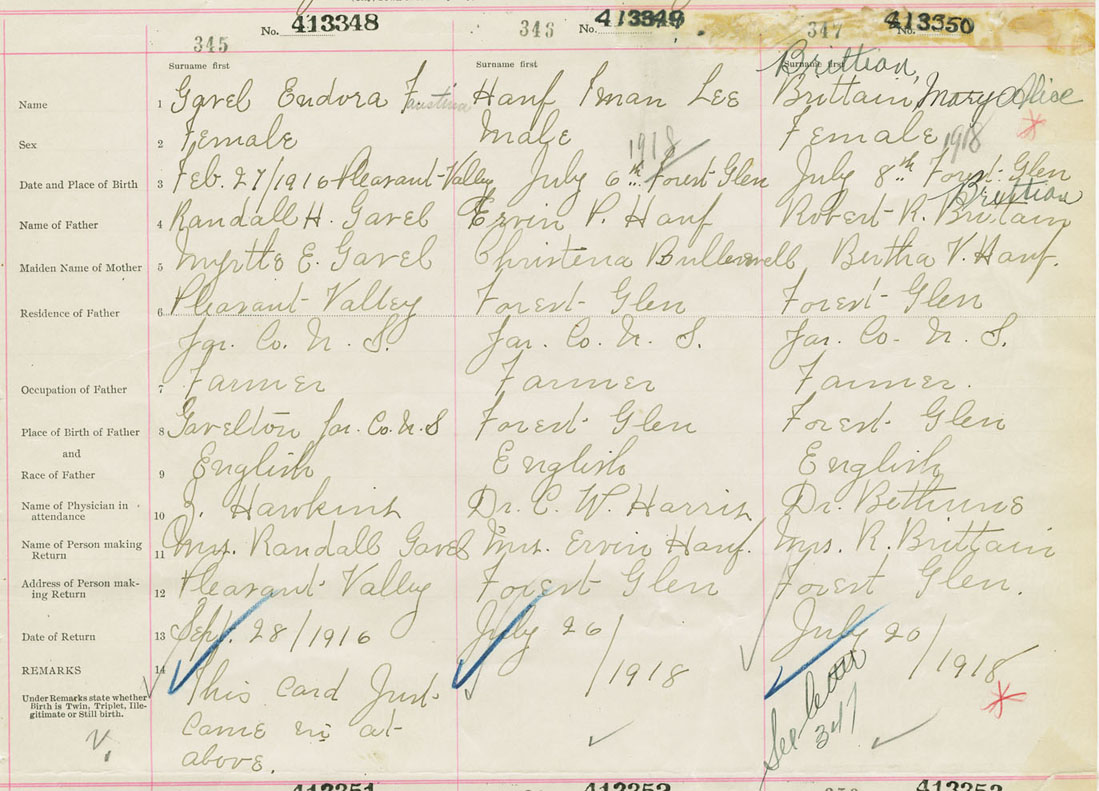 No. 413348 No. 413349 No. 413350
345 346 347
Surname first Surname first Surname first
Brittion,
Name 1 Gavel Eudora Faustina Hanf Iman Lee Brittain, Mary Alice
Sex 2 Female Male Female
1918 1918
Date and Place of Birth 3 Feb. 27/1916 Pleasant Valley July 6th Forest Glen July 8th Forest Glen
Brittion
Name of Father 4 Randall H. Gavel Ervin P. Hanf Robert R. Britain
Maiden Name of Mother 5 Myrtle E. Gavel Christena Bullerwell Bertha V. Hanf.
Residence of Father 6 Pleasant Valley Forest Glen Forest Glen
Yar. Co. N. S. Yar. Co. N. S. Yar. Co. N. S.
Occupation of Father 7 Farmer Farmer Farmer.
Place of Birth of Father 8 Gavelton Yar. Co. N. S Forest Glen Forest Glen
and
Race of Father 9 English English English
Name of Physician in
attendance 10 Hawkins Dr. C. W. Harris Dr. Bethune
Name of Person making
Return 11 Mrs. Randall Gavel Mrs. Ervin Hanf. Mrs. R. Brittain
Address of Person mak-
ing Return 12 Pleasant Valley Forest Glen Forest Glen.
Date of Return 13 Sept. 28/1916 July 26/1918 July 20/1918
REMARKS 14 This card just
Under Remarks state whether
Birth is Twin, Triplet, Ille-
gitimate or Still birth.
came in at
above.
See letter
347